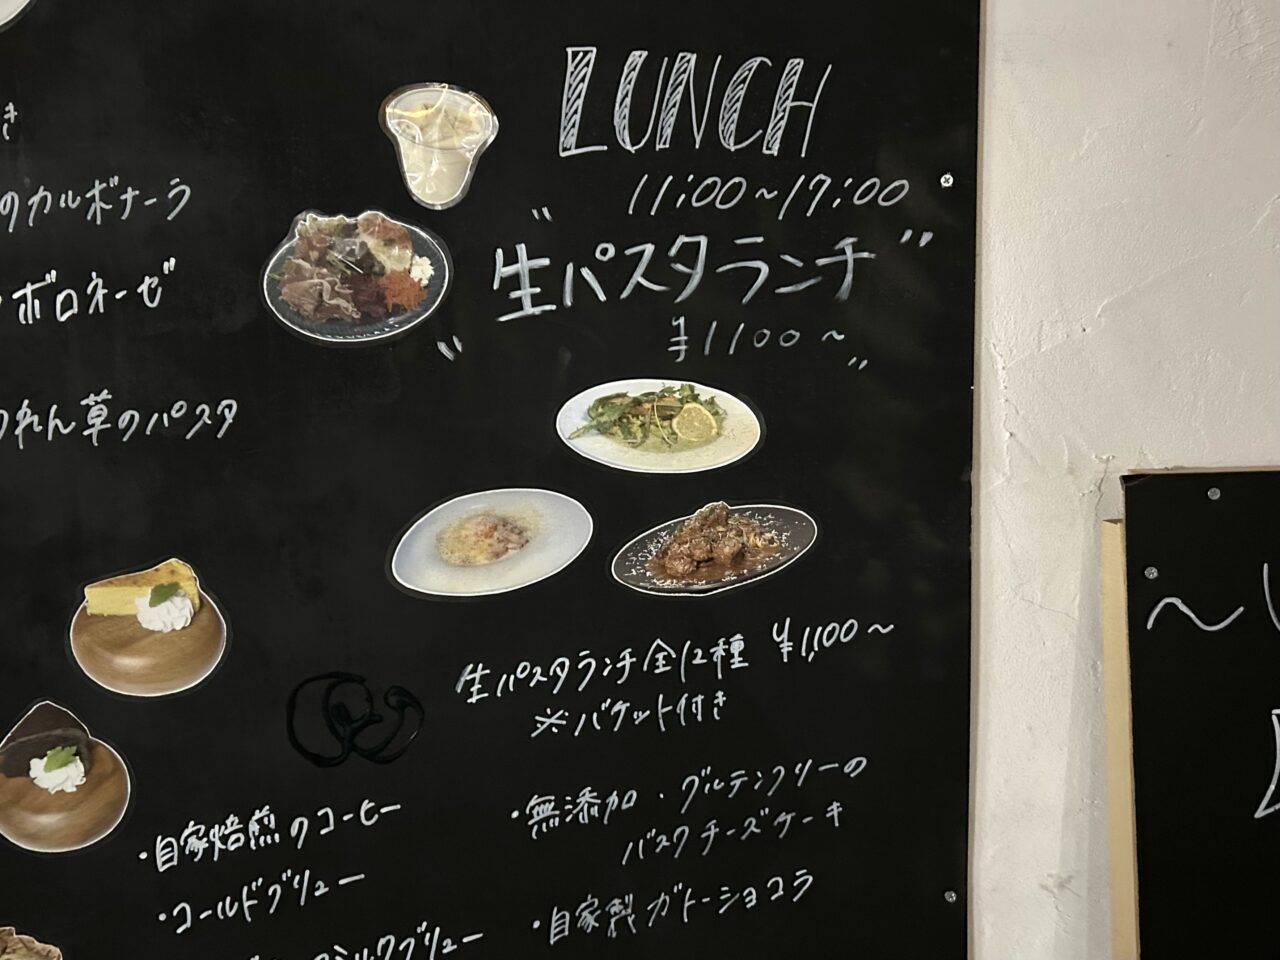 き
のカルボナーラ
ボロネーゼ
れん草のパスタ
LUNCH
11:00～17:00
"生パスタランチ"
"¥1100～"
生パスタランチ全12種 ¥1,100～
※バケット付き
・自家焙煎のコーヒー
・コールドブリュー
ミルクブリュー
・無添加・グルテンフリーの
バスクチーズケーキ
・自家製ガトーショコラ
～